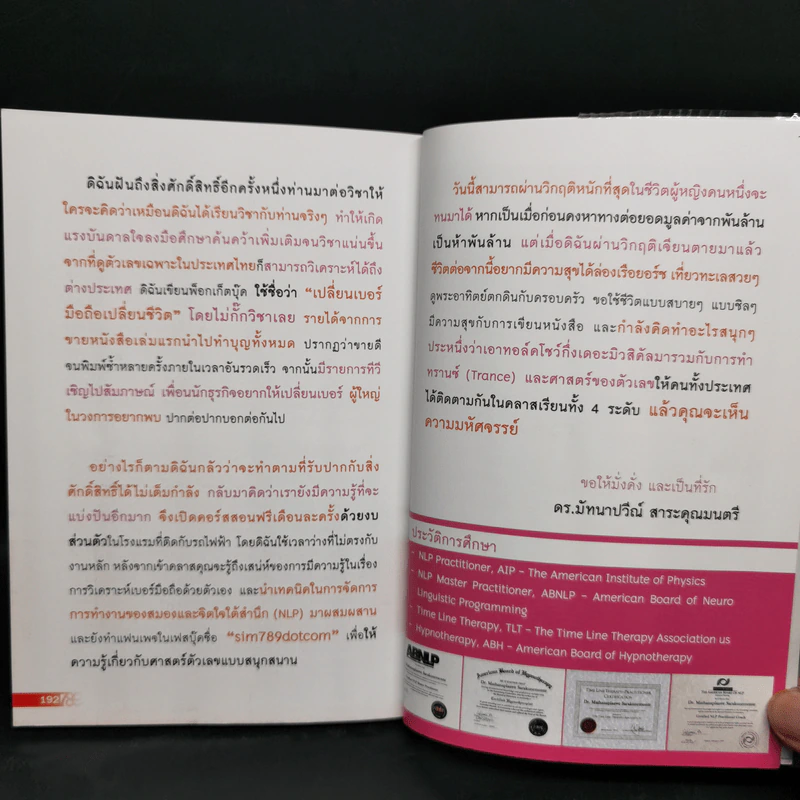 ดิฉันฝันถึงสิ่งศักดิ์สิทธิ์อีกครั้งหนึ่งท่านมาต่อวิชาให้
ใครจะคิดว่าเหมือนดิฉันได้เรียนวิชากับท่านจริงๆ ทำให้เกิด
แรงบันดาลใจลงมือศึกษาค้นคว้าเพิ่มเติมจนวิชาแน่นขึ้น
จากที่ดูตัวเลขเฉพาะในประเทศไทยก็สามารถวิเคราะห์ได้ถึง
ต่างประเทศ ดิฉันเขียนพ็อกเก็ตบุ๊ค ใช้ชื่อว่า "เปลี่ยนเบอร์
มือถือเปลี่ยนชีวิต" โดยไม่กั๊กวิชาเลย รายได้จากการ
ขายหนังสือเล่มแรกนำไปทำบุญทั้งหมด ปรากฏว่าขายดี
จนพิมพ์ซ้ำหลายครั้งภายในเวลาอันรวดเร็ว จากนั้นมีรายการทีวี
เชิญไปสัมภาษณ์ เพื่อนนักธุรกิจอยากให้เปลี่ยนเบอร์ ผู้ใหญ่
ในวงการอยากพบ ปากต่อปากบอกต่อกันไป
อย่างไรก็ตามดิฉันกลัวว่าจะทำตามที่รับปากกับสิ่ง
ศักดิ์สิทธิ์ได้ไม่เต็มกำลัง กลับมาคิดว่าเรายังมีความรู้ที่จะ
แบ่งปันอีกมาก จึงเปิดคอร์สสอนฟรีเดือนละครั้งด้วยงบ
ส่วนตัวในโรงแรมที่ติดกับรถไฟฟ้า โดยดิฉันใช้เวลาว่างที่ไม่ตรงกับ
งานหลัก หลังจากเข้าคลาสคุณจะรู้ถึงเสน่ห์ของการมีความรู้ในเรื่อง
การวิเคราะห์เบอร์มือถือด้วยตัวเอง และนำเทคนิคในการจัดการ
การทำงานของสมองและจิตใจใต้สำนึก (NLP) มาผสมผสาน
และยังทำแฟนเพจในเฟสบุ๊คชื่อ "sim789dotcom" เพื่อให้
ความรู้เกี่ยวกับศาสตร์ตัวเลขแบบสนุกสนาน
192
วันนี้สามารถผ่านวิกฤติหนักที่สุดในชีวิตผู้หญิงคนหนึ่งจะ
ทนมาได้ หากเป็นเมื่อก่อนคงหาทางต่อยอดมูลค่าจากพันล้าน
เป็นห้าพันล้าน แต่เมื่อดิฉันผ่านวิกฤติเจียนตายมาแล้ว
ชีวิตต่อจากนี้อยากมีความสุขได้ล่องเรือยอร์ช เที่ยวทะเลสวยๆ
ดูพระอาทิตย์ตกดินกับครอบครัว ขอใช้ชีวิตแบบสบายๆ แบบชิลๆ
มีความสุขกับการเขียนหนังสือ และกำลังคิดทำอะไรสนุกๆ
ประหนึ่งว่าเอาทอล์คโชว์กึ่งเดอะมิวสิคัลมารวมกับการทำ
ทรานซ์ (Trance) และศาสตร์ของตัวเลขให้คนทั้งประเทศ
ได้ติดตามกันในคลาสเรียนทั้ง 4 ระดับ แล้วคุณจะเห็น
ความมหัศจรรย์
ขอให้มั่งคั่ง และเป็นที่รัก
ดร.มัทนาปวีณ์ สาระคุณมนตรี
ประวัติการศึกษา
• NLP Practitioner, AIP – The American Institute of Physics
• NLP Master Practitioner, ABNLP – American Board of Neuro
Linguistic Programming
• Time Line Therapy, TLT – The Time Line Therapy Association us
• Hypnotherapy, ABH – American Board of Hypnotherapy
ABNLP
American Board of Hypnotherapy